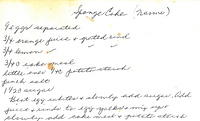 Sponge Cake (Nanni)
9 eggs separated
3/4 orange juice & grated rind
3/4 lemon
3/4 C cake meal
little over 1/4 C potato starch
pinch salt
1 1/2 C sugar
Beat egg whites & slowly add sugar. Add
juice & rinds to egg yolks & mix again
slowly add cake meal & potato starch